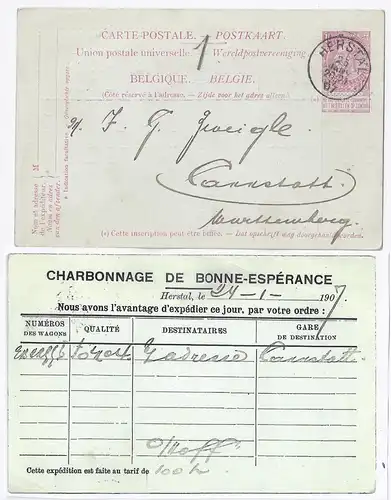 CARTE-POSTALE. POSTKAART.
Union postale universelle. Wereldpostvereeniging
BELGIQUE. BELGIE.
(Côté réservé à l'adresse. Zijde voor het adres alleen.)
HERSTAL
F. G. Zweigle
Cannstatt.
Württemberg.
(*) Cette inscription peut être biffée. Dat opschrift mag doorgehaald worden.
Nom et adresse
de l'expéditeur.
Naam en adres
van den afzender.
* Indication facultative.
CHARBONNAGE DE BONNE-ESPÉRANCE
Herstal, le 24-1- 1907
Nous avons l'avantage d'expédier ce jour, par votre ordre :
NUMÉROS
DES WAGONS
QUALITÉ
DESTINATAIRES
GARE
DE DESTINATION
adresse Cannstatt
Cette expédition est faite au tarif de